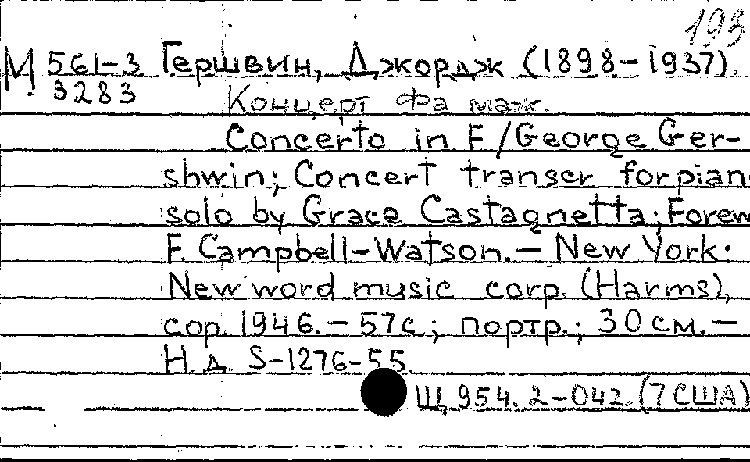 193
М 561-3 Гершвин, Джордж (1898-1937).
3283
Концерт Фа маж.
Concerto in F/George Ger-
shwin; Concert transcr for pian
solo by Grace Castagnetta; Forew
F. Campbell-Watson. — New York:
New word music corp. (Harms),
cop. 1946. — 57с; портр.; 30 см. —
Н. д. S-1276-55.
Щ 954.2-042 (7 США)